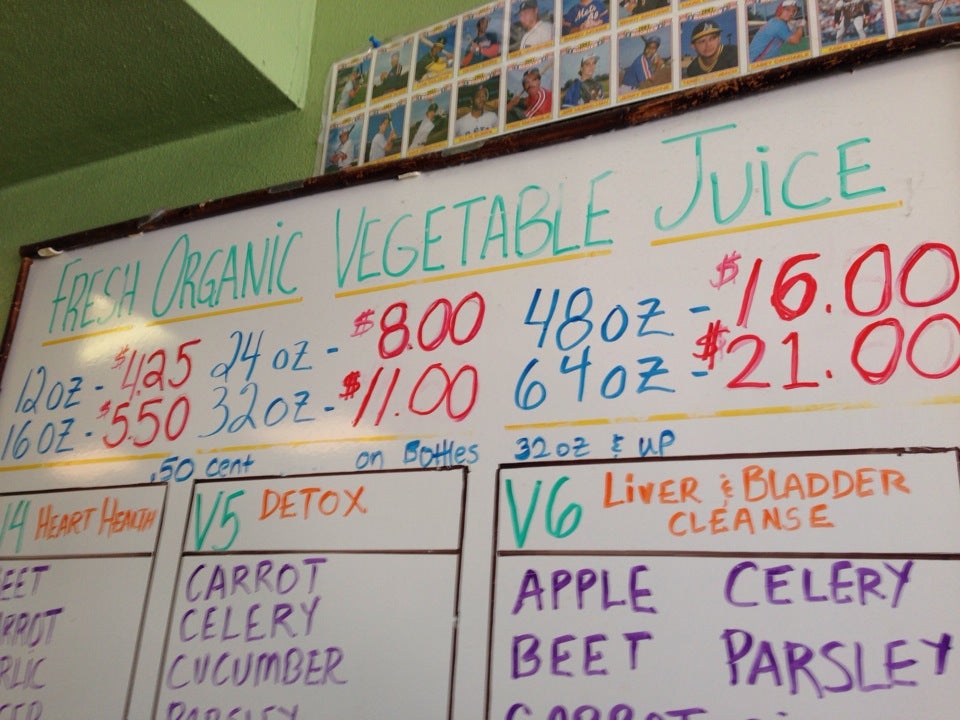 FRESH ORGANIC VEGETABLE JUICE
12 OZ - $4.25 24 OZ - $8.00 48 OZ - $16.00
16 OZ - $5.50 32 OZ - $11.00 64 OZ - $21.00
.50 cent on Bottles 32 oz & up
V4 HEART HEALTH
EET
RROT
RLIC
V5 DETOX
CARROT
CELERY
CUCUMBER
PARSLEY
V6 LiVER & BLADDER
CLEANSE
APPLE CELERY
BEET PARSLEY
CARROT